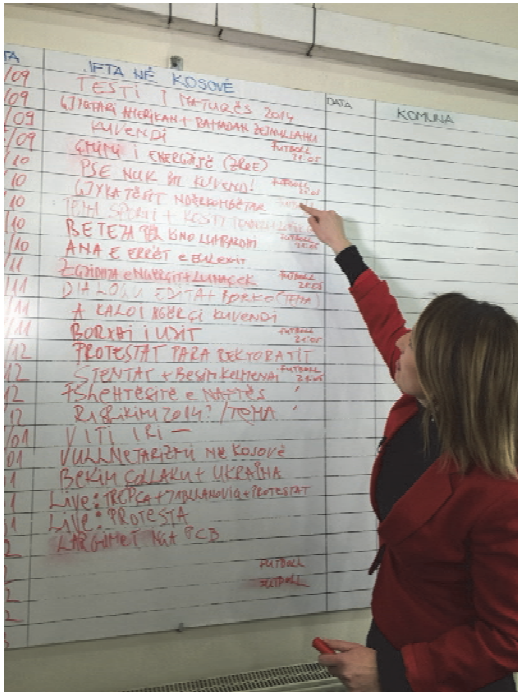 TA
JETA NË KOSOVË
DATA
KOMUNA
/09
TESTI I MATURËS 2014
/09
GJYQTARI AMERIKAN I RAMADAN
/09
KUVENDI
FUTBOLL
21:05
/09
ÇMIMI I ENERGJISË (ZRRE)
/10
PSE NUK KA KUVEND!
FUTBOLL
/10
GJYKATËSIT NDËRKOMBËTAR
/10
/10
BETEJA PËR KINO LUMBARDHI
FUTBOLL
/10
ANA E ERRËT e EULEXIT
/11
ZGJIDHJA e NGËRÇIT + LUNAÇEK
FUTBOLL
21:05
/11
DIALOGU EDITA + BORKO TEMA
/11
A KALOI NGËRÇI KUVENDI
/11
BORXHI I UJIT
FUTBOLL
21:05
/12
PROTESTAT PARA REKTORATIT
12
STENTAT + BESIM KELMENDI
FUTBOLL
21:05
12
FSHEHTËSITË E NAFTËS
12
2014? / TEMA
/01
VITI I RI —
01
VULLNETARIZMI NË KOSOVË
1
BEKIM COLLAKU + UKRAINA
1
Live: TREPÇA + JABLLANOVIQ + PROTESTAT
1
Live: PROTESTA
2
LARGIMET NGA PCB
2
FUTBOLL
2
FUTBOLL